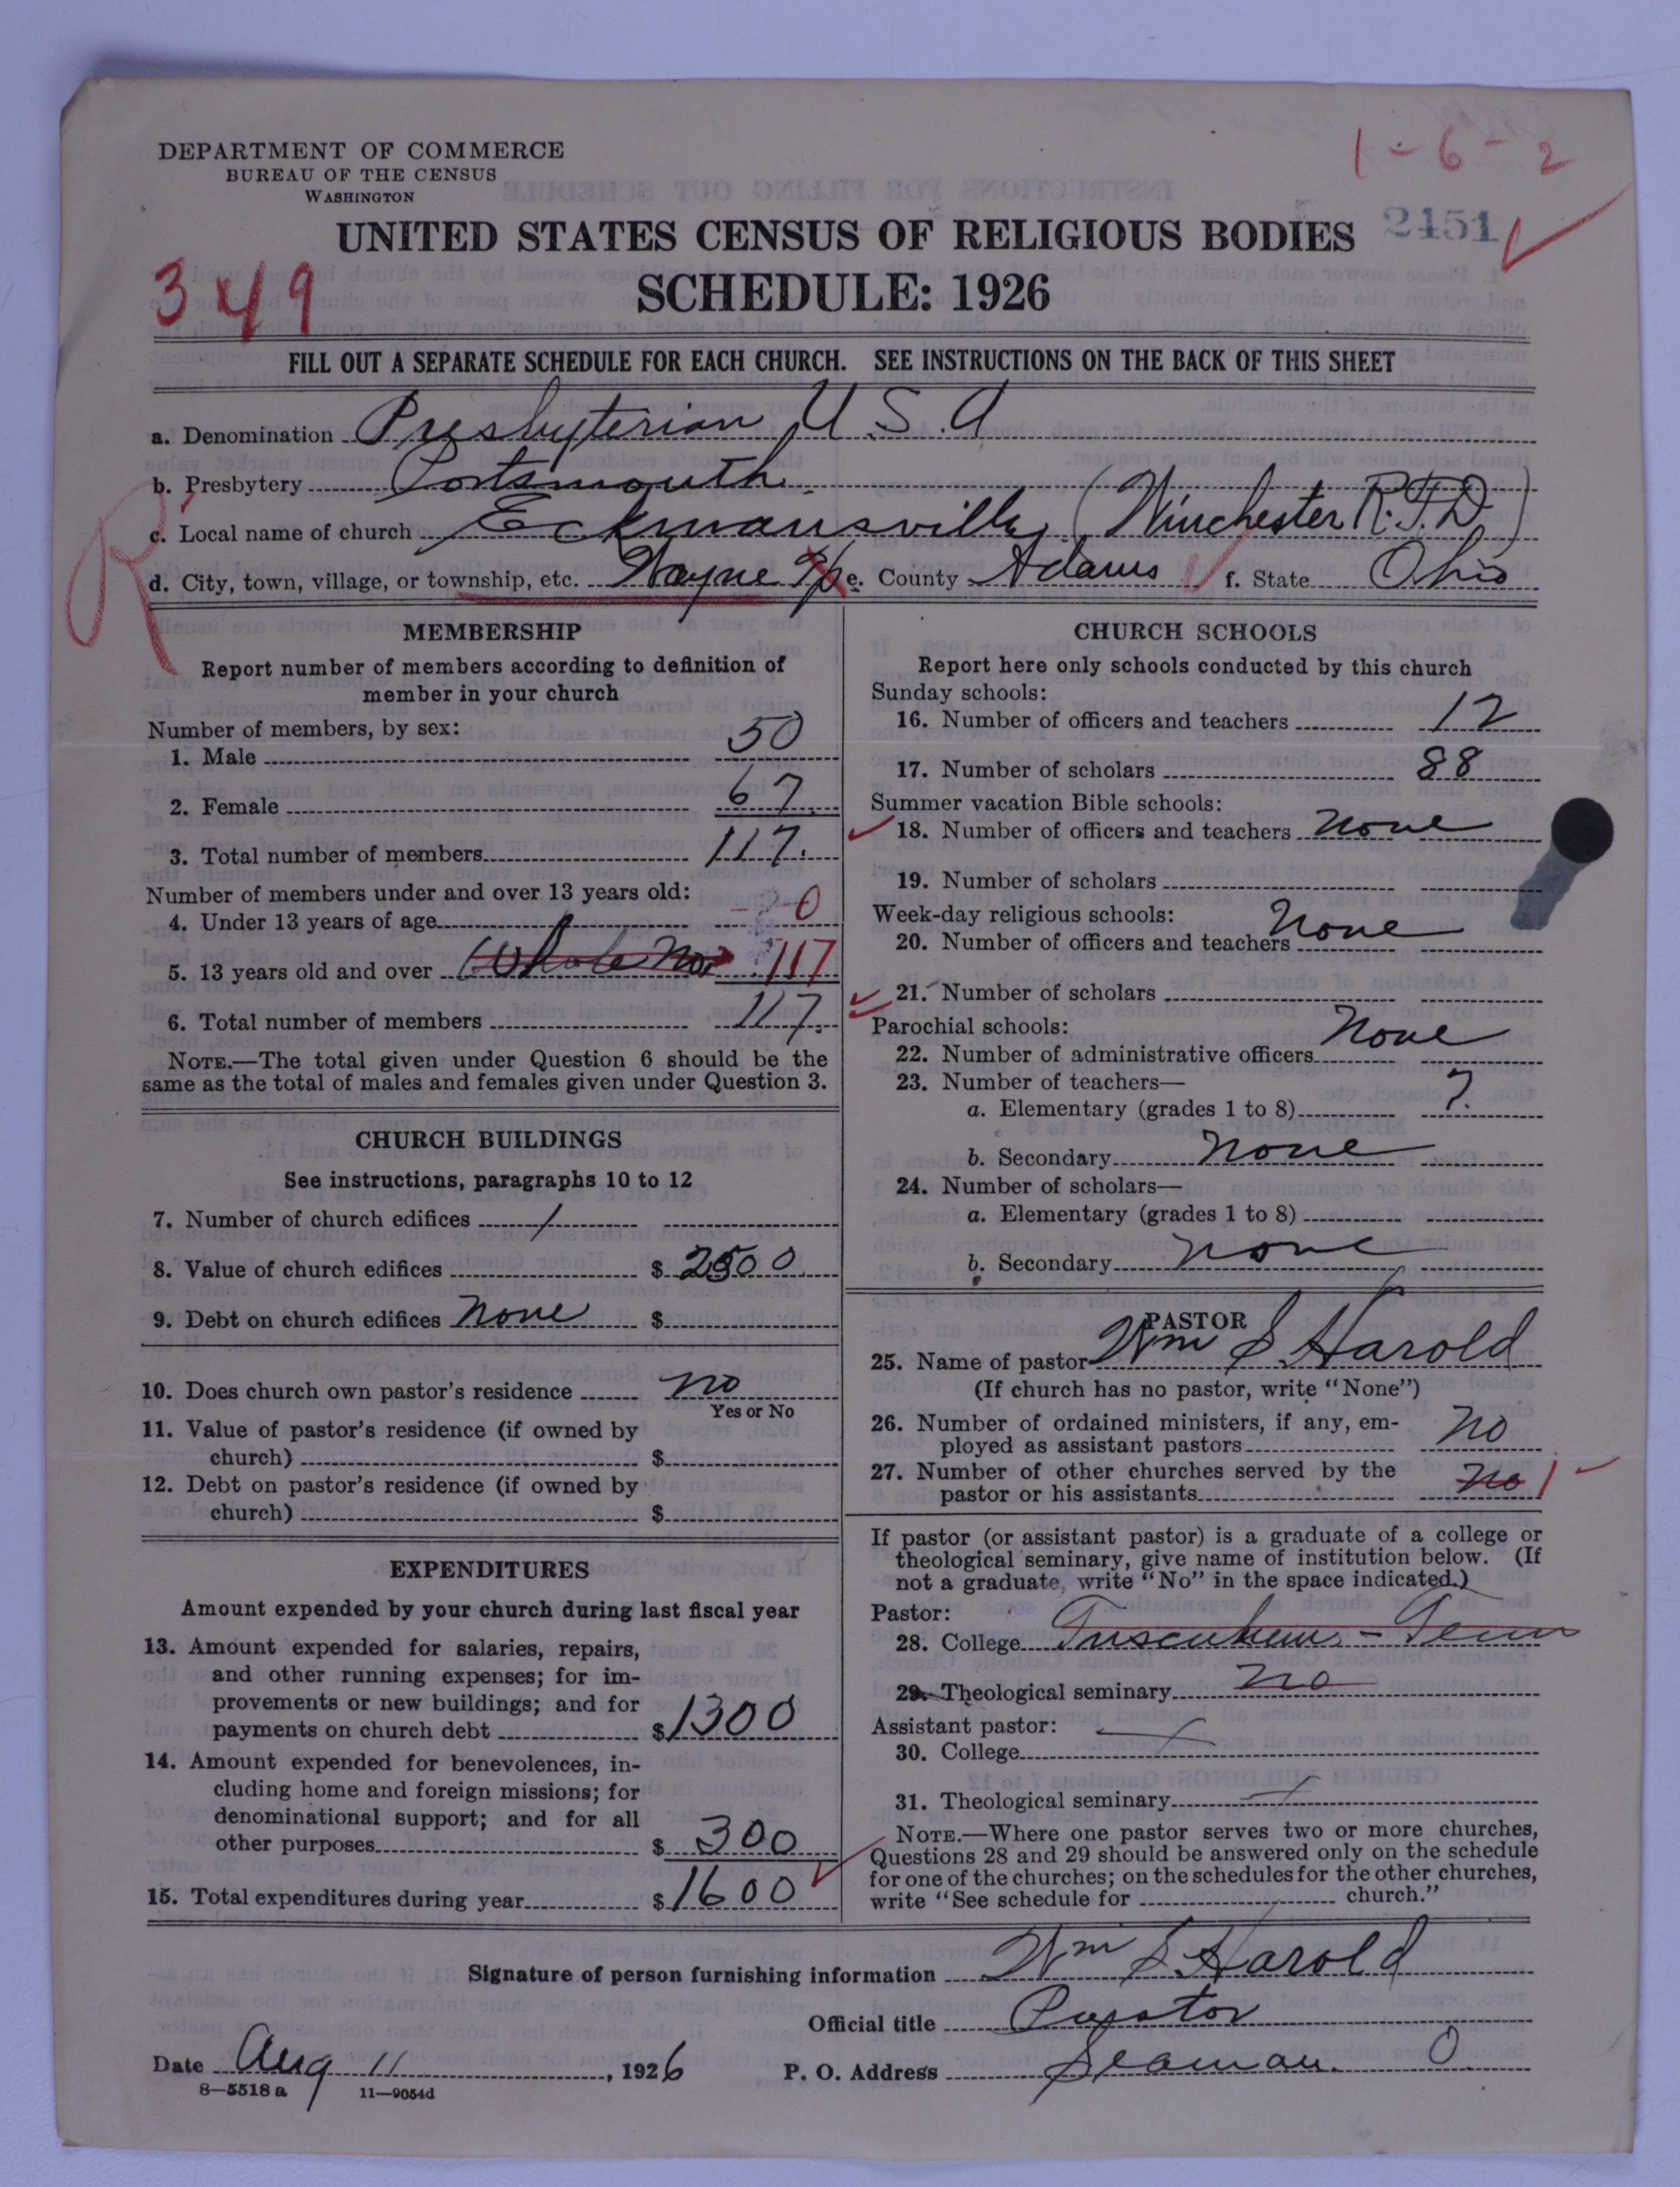 1 - 6 - 2
DEPARTMENT OF COMMERCE
BUREAU OF THE CENSUS
WASHINGTON
UNITED STATES CENSUS OF RELIGIOUS BODIES 2451
SCHEDULE: 1926
349
FILL OUT A SEPARATE SCHEDULE FOR EACH CHURCH. SEE INSTRUCTIONS ON THE BACK OF THIS SHEET
a. Denomination Presbyterian U.S.A
b. Presbytery Portsmouth.
c. Local name of church Eckmansville (Winchester R.F.D.)
R
d. City, town, village, or township, etc. Wayne Tp e. County Adams f. State Ohio
MEMBERSHIP
Report number of members according to definition of
member in your church
Number of members, by sex:
1. Male 50
2. Female 67
3. Total number of members 117.
Number of members under and over 13 years old:
4. Under 13 years of age 0
5. 13 years old and over Whole No. 117
6. Total number of members 117.
NOTE.—The total given under Question 6 should be the
same as the total of males and females given under Question 3.
CHURCH BUILDINGS
See instructions, paragraphs 10 to 12
7. Number of church edifices 1
8. Value of church edifices $ 2500
9. Debt on church edifices None $
10. Does church own pastor's residence no
Yes or No
11. Value of pastor's residence (if owned by
church) $
12. Debt on pastor's residence (if owned by
church) $
EXPENDITURES
Amount expended by your church during last fiscal year
13. Amount expended for salaries, repairs,
and other running expenses; for im-
provements or new buildings; and for
payments on church debt $ 1300
14. Amount expended for benevolences, in-
cluding home and foreign missions; for
denominational support; and for all
other purposes $ 300
15. Total expenditures during year $ 1600
CHURCH SCHOOLS
Report here only schools conducted by this church
Sunday schools:
16. Number of officers and teachers 12
17. Number of scholars 88
Summer vacation Bible schools:
18. Number of officers and teachers None
19. Number of scholars
Week-day religious schools:
20. Number of officers and teachers None
21. Number of scholars
Parochial schools:
22. Number of administrative officers None
23. Number of teachers—
a. Elementary (grades 1 to 8) 7.
b. Secondary None
24. Number of scholars—
a. Elementary (grades 1 to 8)
b. Secondary None
PASTOR
25. Name of pastor Wm S Harold
(If church has no pastor, write "None")
26. Number of ordained ministers, if any, em-
ployed as assistant pastors No
27. Number of other churches served by the
pastor or his assistants No 1
If pastor (or assistant pastor) is a graduate of a college or
theological seminary, give name of institution below. (If
not a graduate, write "No" in the space indicated.)
Pastor:
28. College Tusculum - Tenn
29. Theological seminary No
Assistant pastor:
30. College
31. Theological seminary
NOTE.—Where one pastor serves two or more churches,
Questions 28 and 29 should be answered only on the schedule
for one of the churches; on the schedules for the other churches,
write "See schedule for church."
Signature of person furnishing information Wm S Harold
Official title Pastor
Date Aug 11, 1926 P. O. Address Seaman. O.
8—5518 a 11—9054d